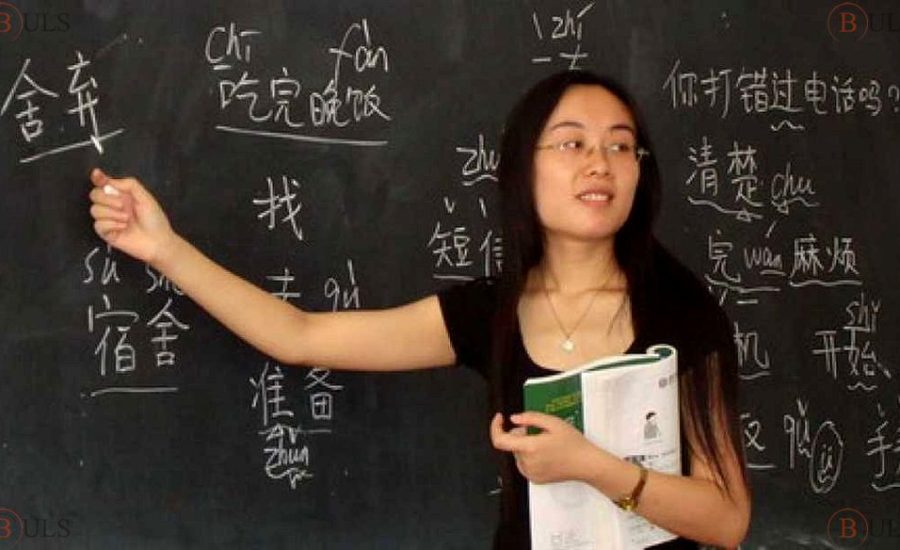 BULS
BULS
舍弃
chī fàn
吃完晚饭
zhǐ
你打错过电话吗?
找
清楚 chu
短信
完 wán 麻烦
sù shè
宿舍
去 qù
shǐ
机 开始
准备
zhǔn
qù ü 手
BULS
BULS